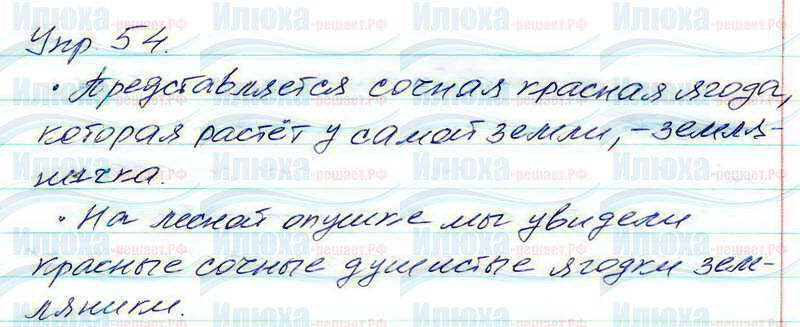 Упр 54.
• Представляется сочная красная ягода,
которая растёт у самой земли, – земля-
ничка.
• На лесной опушке мы увидели
красные сочные душистые ягодки зем-
ляники.